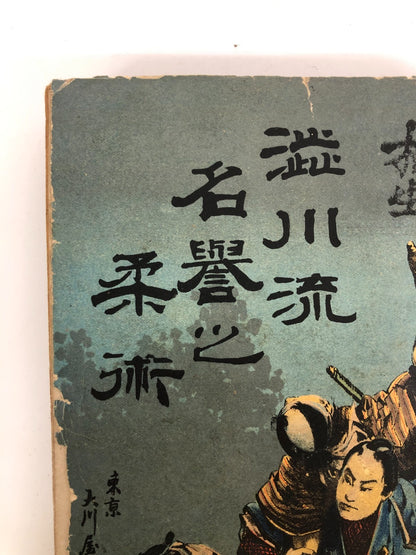 澁川流
名譽之
柔術
東京
大川屋